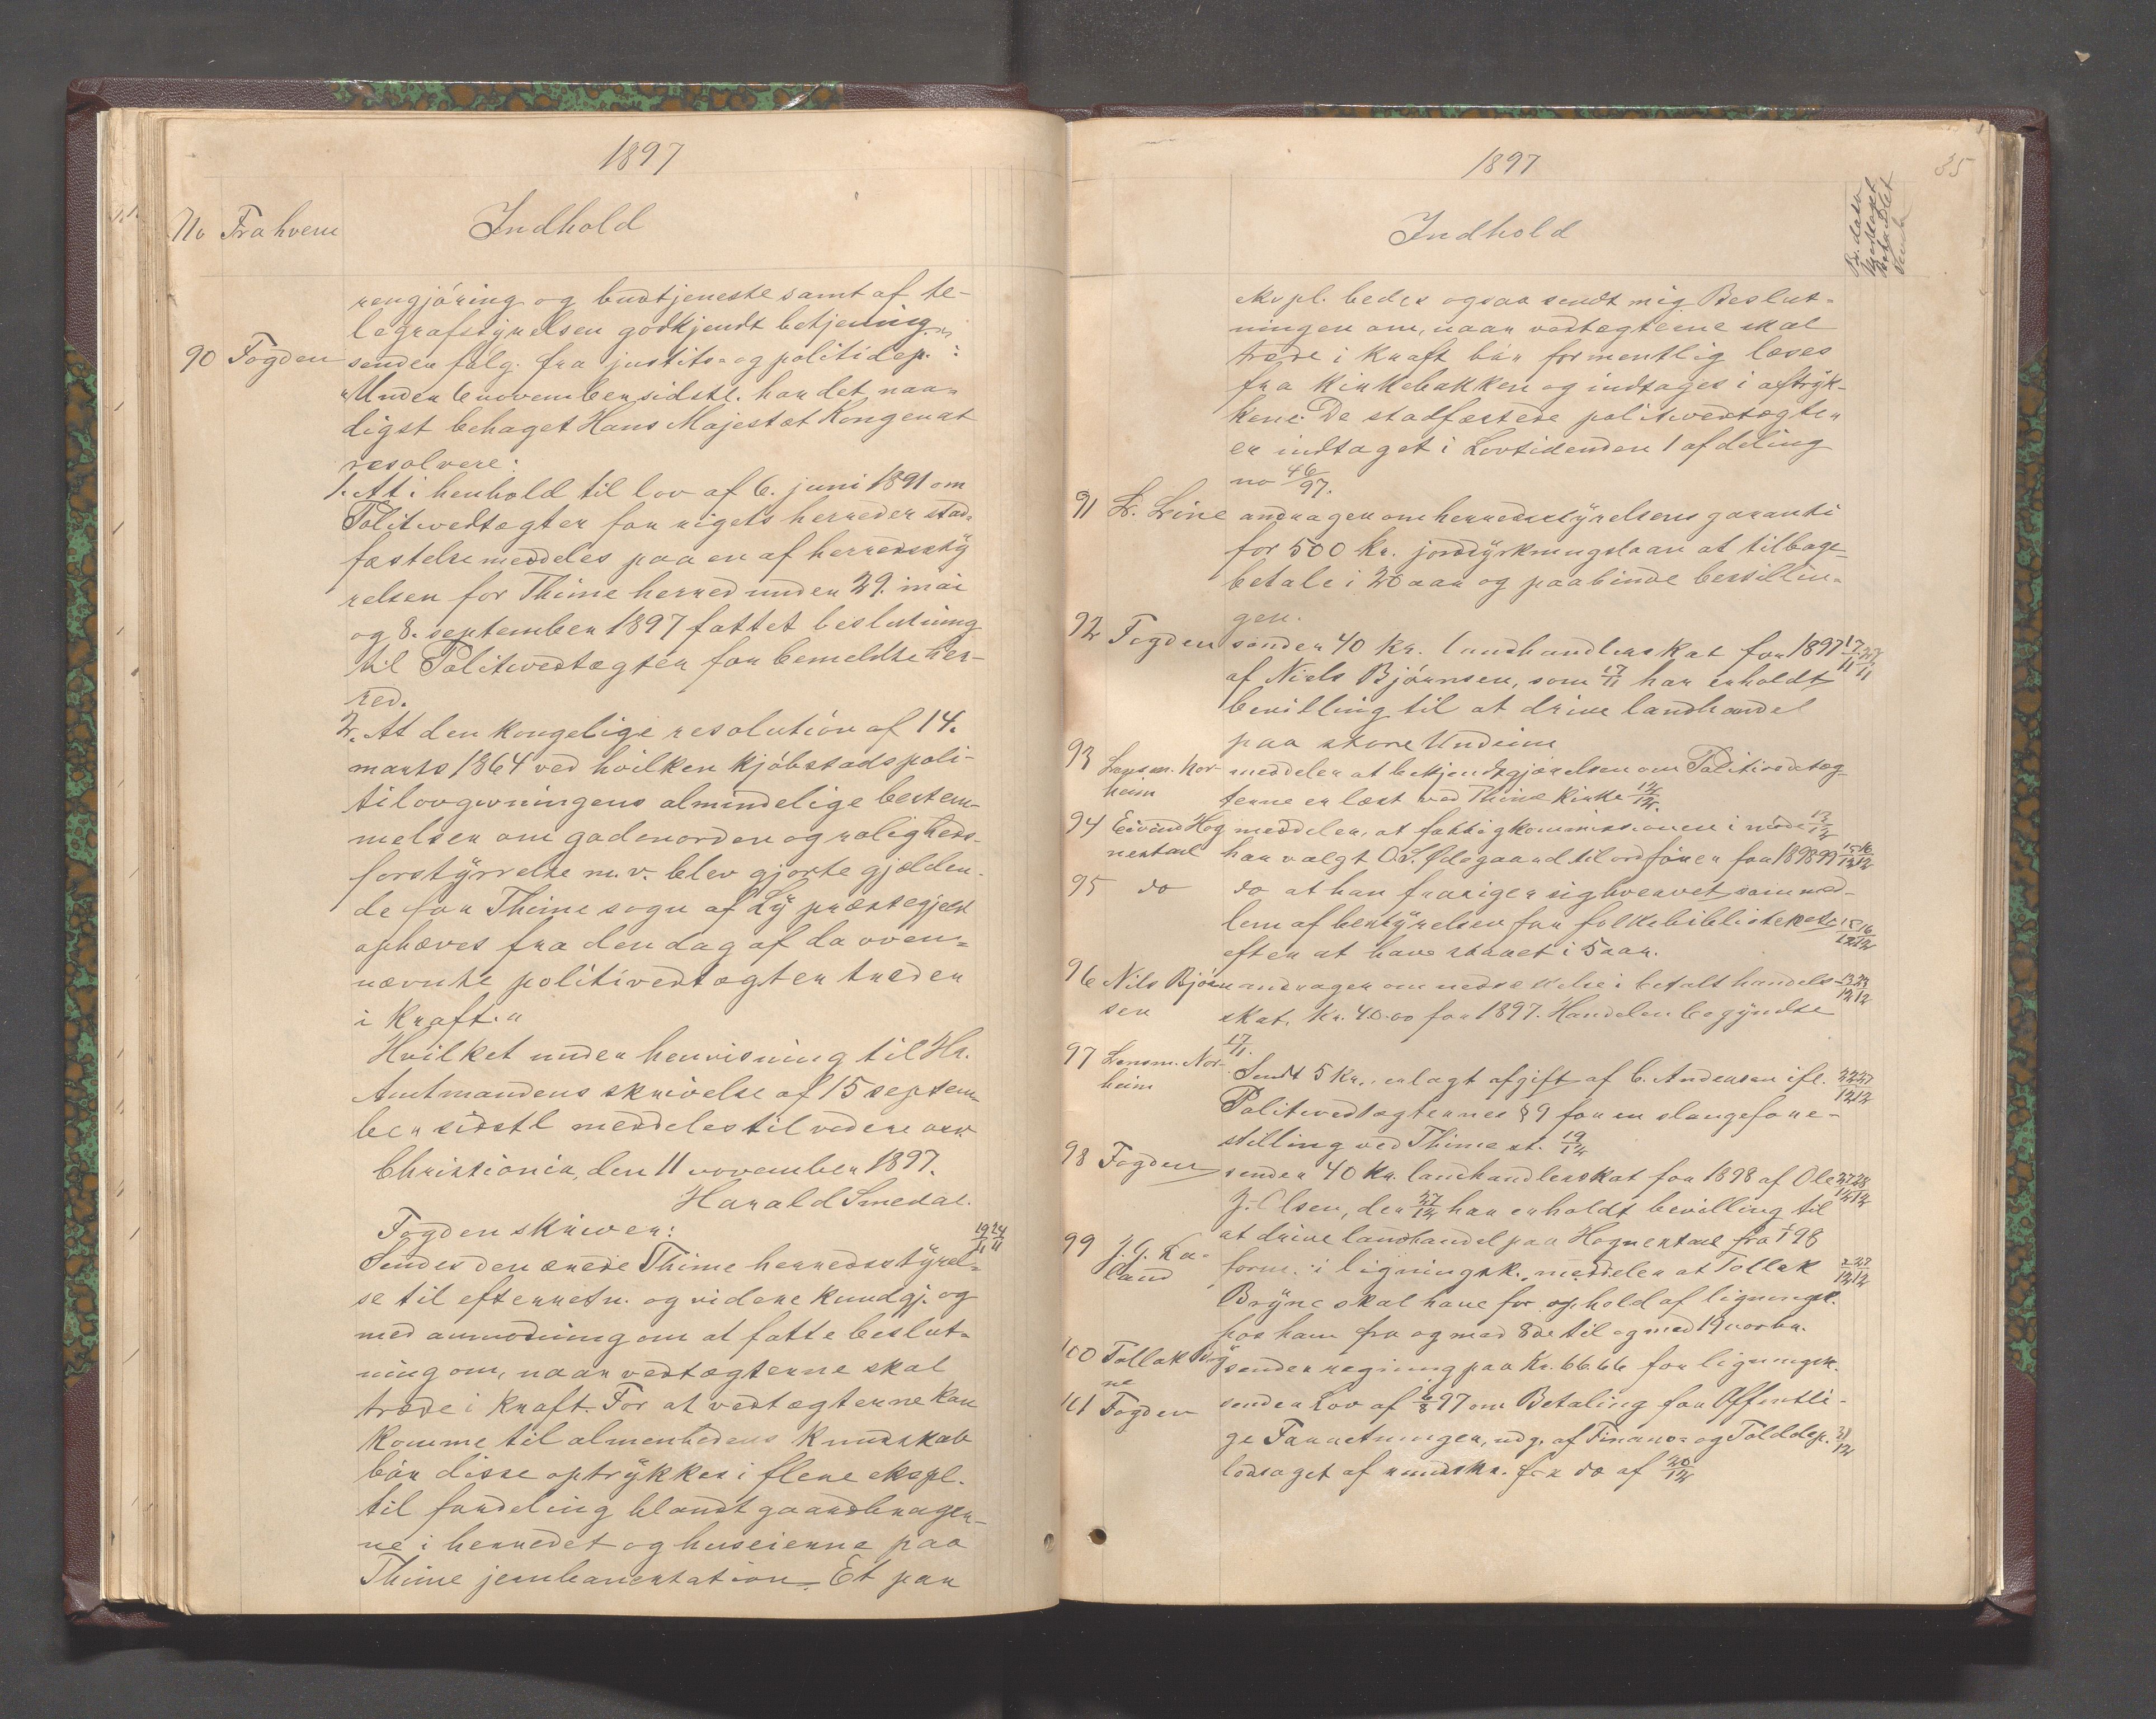 1897
No Fra hvem Indhold
rengjöring og budtjeneste samt af te-
legrafstyrelsen godkjendt betjening.
90 Fogden sender fölg. fra justits- og politidep.:
"Under 6 november sidstl. har det naa-
digst behaget Hans Majestæt Kongen at
resolvere:
1. At i henhold til lov af 6. juni 1891 om
Politivedtægter for rigets herreder stad-
fæstelse meddeles paa en af herredssty
relsen for Thime herred under 29. mai
og 8. september 1897 fattet beslutning
til Politivedtægter for bemeldte her-
red.
2. At den kongelige resolution af 14.
marts 1864 ved hvilken kjöbstadspoli-
tilovgivningens almindelige bestem-
melser om gadenorden og roligheds-
forstyrrelse m.v. blev gjorte gjælden-
de for Thime sogn af Ly præstegjeld
ophæves fra den dag af da oven-
nævnte politivedtægter træder
i kraft."
Hvilket under henvisning til Hr.
Amtmandens skrivelse af 15 septem-
ber sidstl meddeles til videre
Christiania, den 11 november 1897.
Harald Smedal.
Fogden skriver: 19/11 24/11
Sendes den ærede Thime herredsstyrel-
se til efterretn. og videre kundgj. og
med anmodning om at fatte beslut-
ning om, naar vedtægterne skal
træde i kraft. For at vedtægterne kan
komme til almenhedens kundskab
bör disse optrykkes i flere ekspl.
til fordeling blandt gaardbruger-
ne i herredet og huseierne paa
Thime jernbanestation. Et par
1897
35
Indhold
ekspl. bedes ogsaa sendt mig. Beslut-
ningen om, naar vedtægterne skal
træde i kraft bör formentlig læses
fra kirkebakken og indtages i aftryk-
kene. De stadfæstede politivedtægter
er indtaget i Lovtidenden 1 afdeling
no 46/97.
91 L. Line andrager om herredsstyrelsens garanti
for 500 kr. jorddyrkningslaan at tilbage-
betale i 20 aar og paabinde bestillin-
gen.
92 Fogden sender 40 kr. landhandlerskat for 1897 17/11 27/11
af Niels Bjørnsen, som 17/11 har erholdt
bevilling til at drive landhandel
paa store Undeim
93 Lensm. Nor- meddeler at bekjendtgjørelsen om Politivedtæg-
heim terne er læst ved Thime kirke 12/12.
94 Eivind Hog meddeler, at fattigkommissionen i möde 13/12
nestad har valgt O.S. Ødegaard til ordförer for 1898 99 15/12 16/12
95 do do at han frasiger sig hvervet som med-
lem af bestyrelsen for folkebiblioteket 15/12 16/12
efter at have staaet i 5 aar.
96 Nils Björn andrager om nedsættelse i betalt handels- 13/12 23/12
sen skat, kr. 40.00 for 1897. Handelen begyndte
17/11.
97 Lensm. Nor- Sendt 5 kr., erlagt afgift af C. Andersen ifl. 22/12 27/12
heim Politivedtægternes § 9 for en slangefore-
stilling ved Thime st. 19/12
98 Fogden sender 40 kr. landhandlerskat for 1898 af Ole 27/12 28/12
J. Olsen, der 27/12 har erholdt bevilling til
at drive landhandel paa Hognestad fra 1/1 98
99 J. G. Ka- form. i ligningsk. meddeler at Tollak 2/12 28/12
land Bryne skal have for ophold af ligningsk.
hos ham fra og med 8de til og med 19 novbr.
100 Tollak Bry sender regning paa kr. 66.66 for ligningsk.
ne
101 Fogden sender Lov af 6/8 97 om Betaling for Offentli-
ge Forretninger, udg. af Finans- og Tolddep. 31/12
ledsaget af rundskr. fra do af 20/12